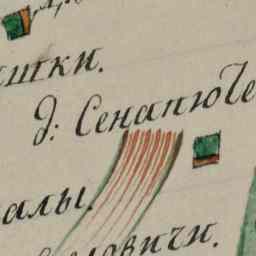 шки.
д: Сенапюче
алы.
ловичи.